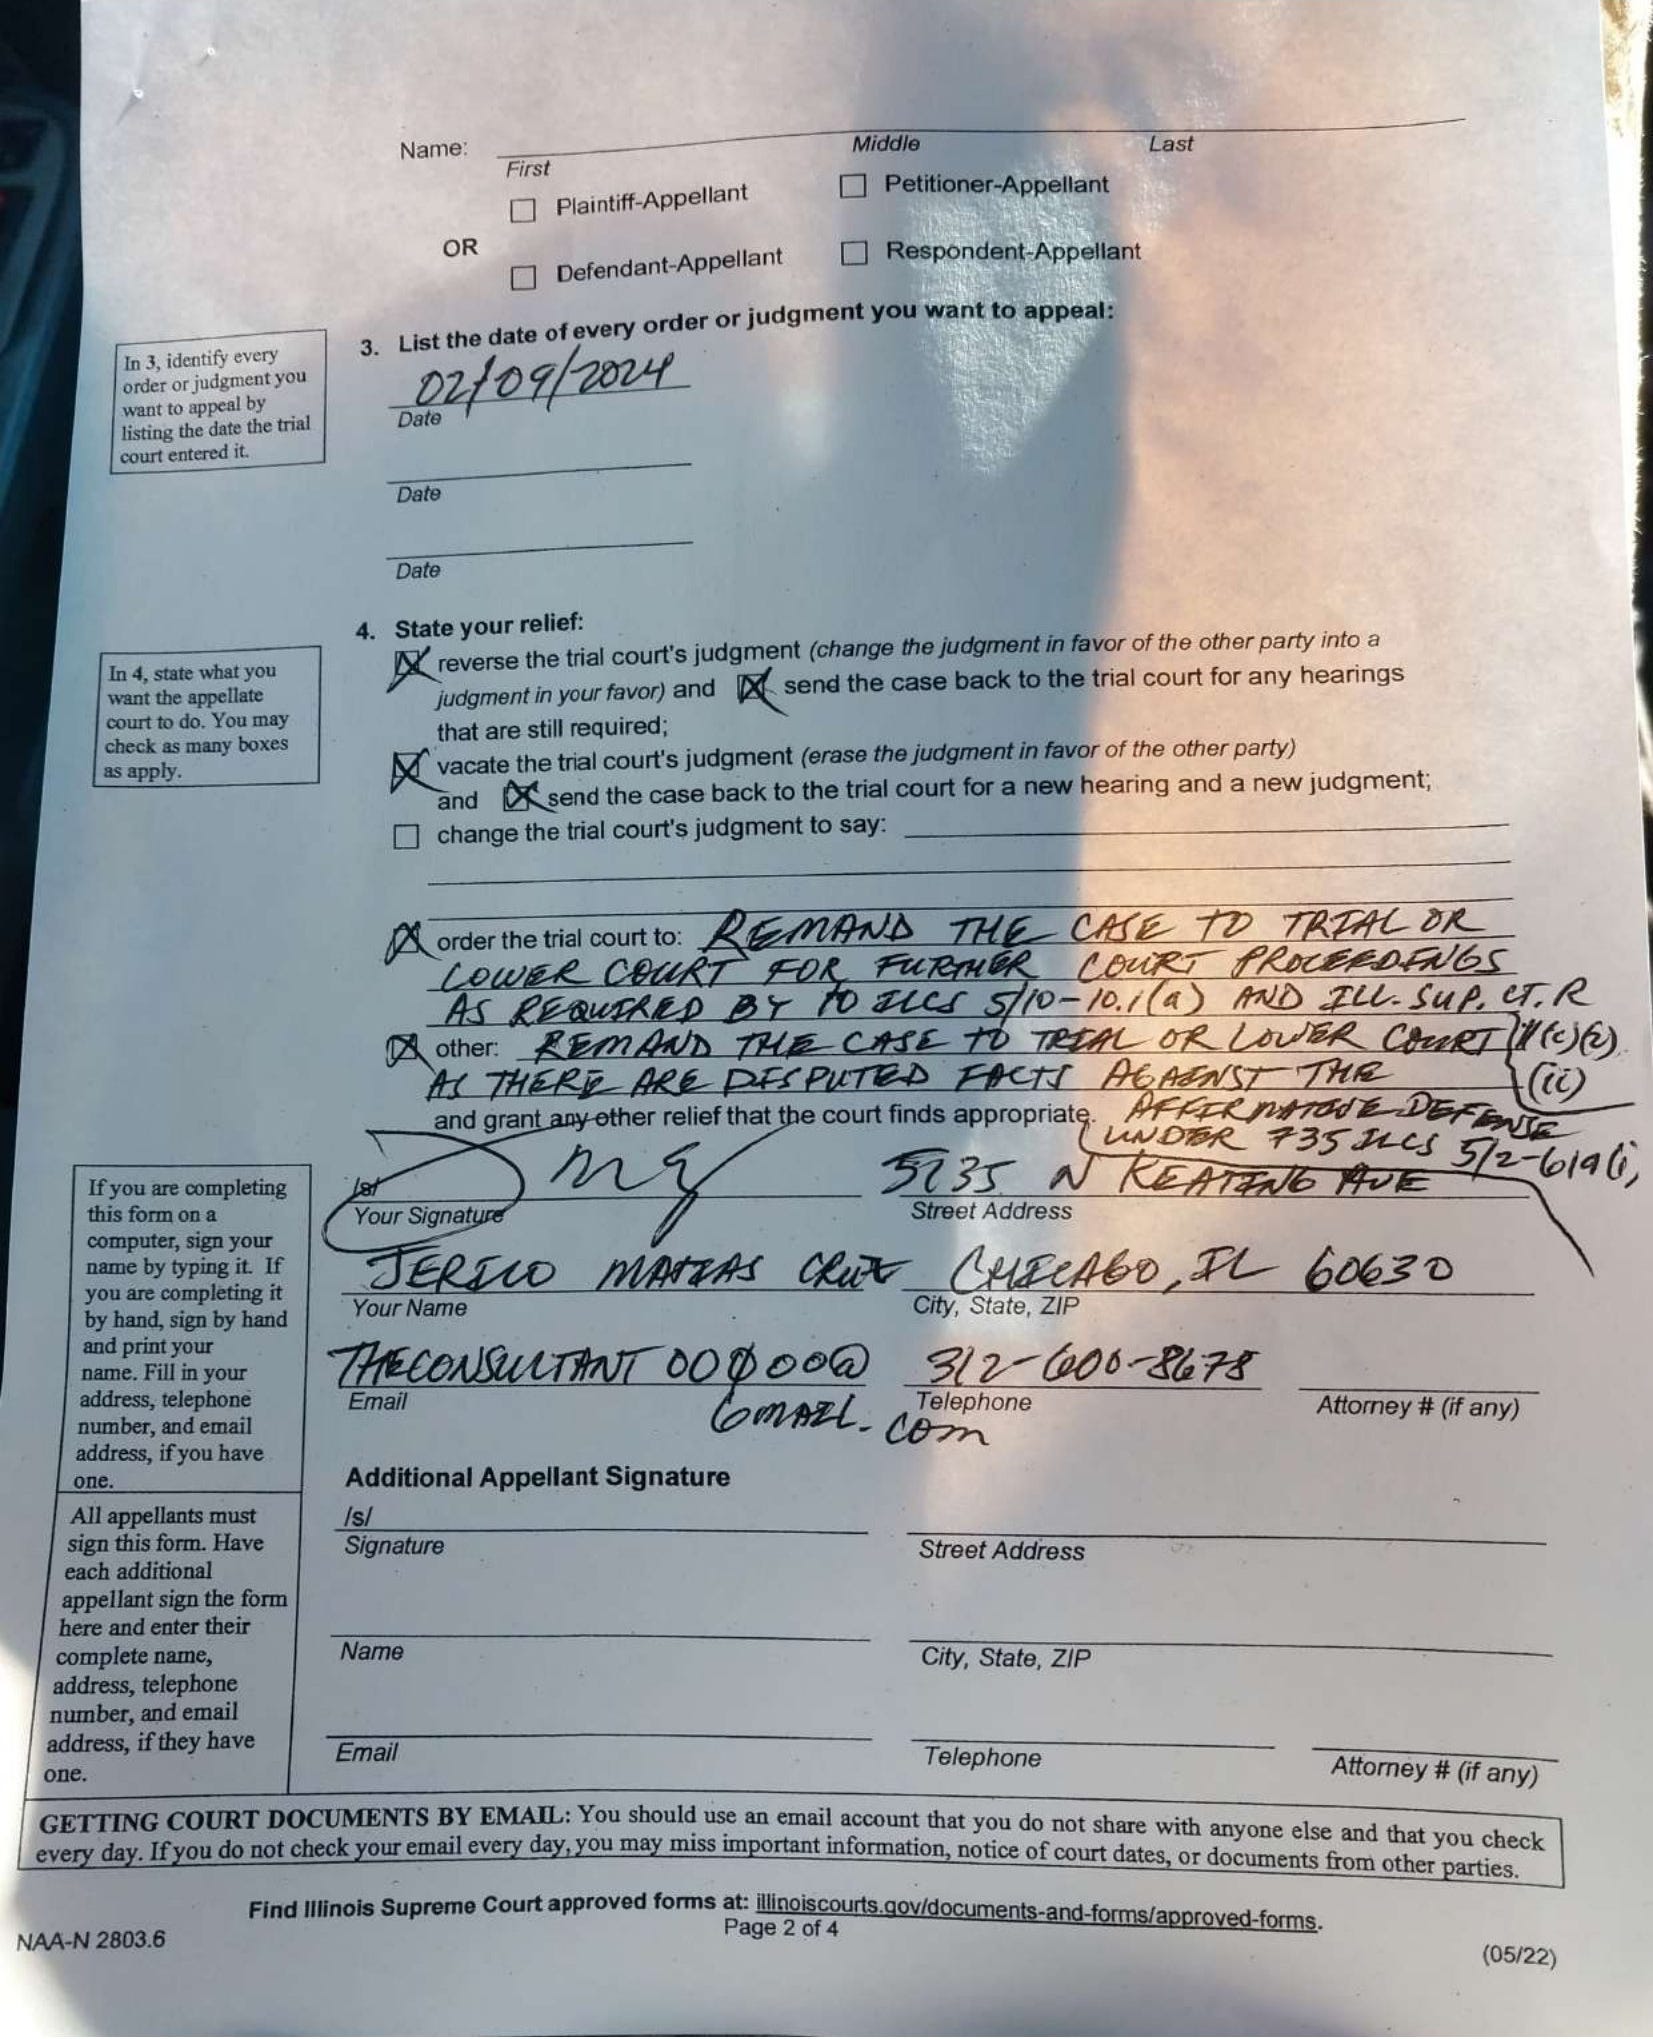 Name:
First
Middle
Last
☐ Plaintiff-Appellant
☐ Petitioner-Appellant
OR
☐ Defendant-Appellant
☐ Respondent-Appellant
In 3, identify every
order or judgment you
want to appeal by
listing the date the trial
court entered it.
3. List the date of every order or judgment you want to appeal:
02/09/2024
Date
Date
Date
In 4, state what you
want the appellate
court to do. You may
check as many boxes
as apply.
4. State your relief:
☒ reverse the trial court's judgment (change the judgment in favor of the other party into a
judgment in your favor) and ☒ send the case back to the trial court for any hearings
that are still required;
☒ vacate the trial court's judgment (erase the judgment in favor of the other party)
and ☒ send the case back to the trial court for a new hearing and a new judgment;
☐ change the trial court's judgment to say:
☒ order the trial court to: REMAND THE CASE TO TRIAL OR
LOWER COURT FOR FURTHER COURT PROCEEDINGS
AS REQUIRED BY 10 ILCS 5/10-10.1(a) AND ILL. SUP. CT. R
☒ other: REMAND THE CASE TO TRIAL OR LOWER COURT (c)(2)
AS THERE ARE DISPUTED FACTS AGAINST THE (ii)
and grant any other relief that the court finds appropriate. AFFIRMATIVE DEFENSE
UNDER 735 ILCS 5/2-619
If you are completing
this form on a
computer, sign your
name by typing it. If
you are completing it
by hand, sign by hand
and print your
name. Fill in your
address, telephone
number, and email
address, if you have
one.
/s/
5135 N KEATING AVE
Your Signature
Street Address
JERICO MATIAS CRUZ
CHICAGO, IL 60630
Your Name
City, State, ZIP
THECONSULTANT00000@
312-600-8678
Email
Telephone
Attorney # (if any)
GMAIL.COM
All appellants must
sign this form. Have
each additional
appellant sign the form
here and enter their
complete name,
address, telephone
number, and email
address, if they have
one.
Additional Appellant Signature
/s/
Signature
Street Address
Name
City, State, ZIP
Email
Telephone
Attorney # (if any)
GETTING COURT DOCUMENTS BY EMAIL: You should use an email account that you do not share with anyone else and that you check
every day. If you do not check your email every day, you may miss important information, notice of court dates, or documents from other parties.
Find Illinois Supreme Court approved forms at: illinoiscourts.gov/documents-and-forms/approved-forms.
NAA-N 2803.6
Page 2 of 4
(05/22)